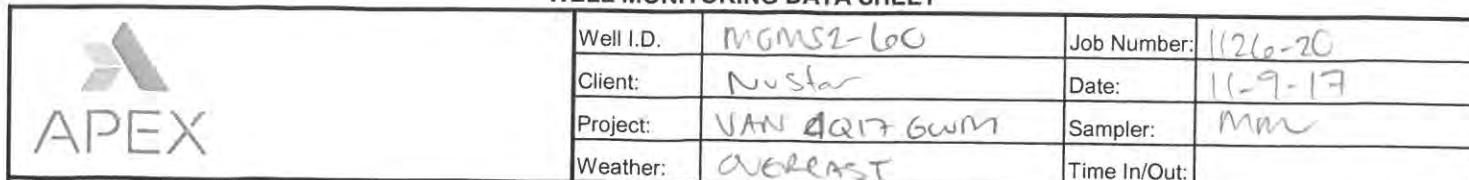 WELL MONITORING DATA SHEET
APEX
Well I.D. MGMS2-60 Job Number: 1126-20
Client: NuStar Date: 11-9-17
Project: VAN 4Q17 GWM Sampler: MM
Weather: OVERCAST Time In/Out: